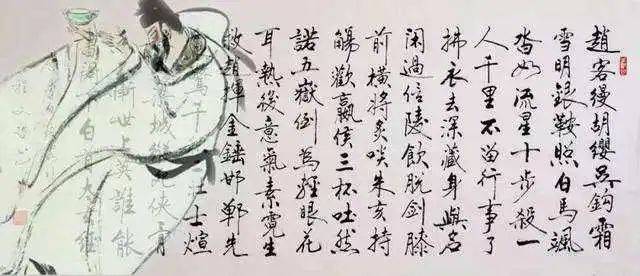 趙客縵胡纓吳鈎霜
雪明銀鞍照白馬颯
沓如流星十步殺一
人千里不留行事了
拂衣去深藏身與名
閑過信陵飲脫劍膝
前橫將炙啖朱亥持
觴勸嬴侯三杯吐然
諾五嶽倒為輕眼花
耳熱後意氣素霓生
救趙揮金錘邯鄲先
驚千壯士煊
城縱死俠骨
慚世上英誰能
閣下白首太玄經